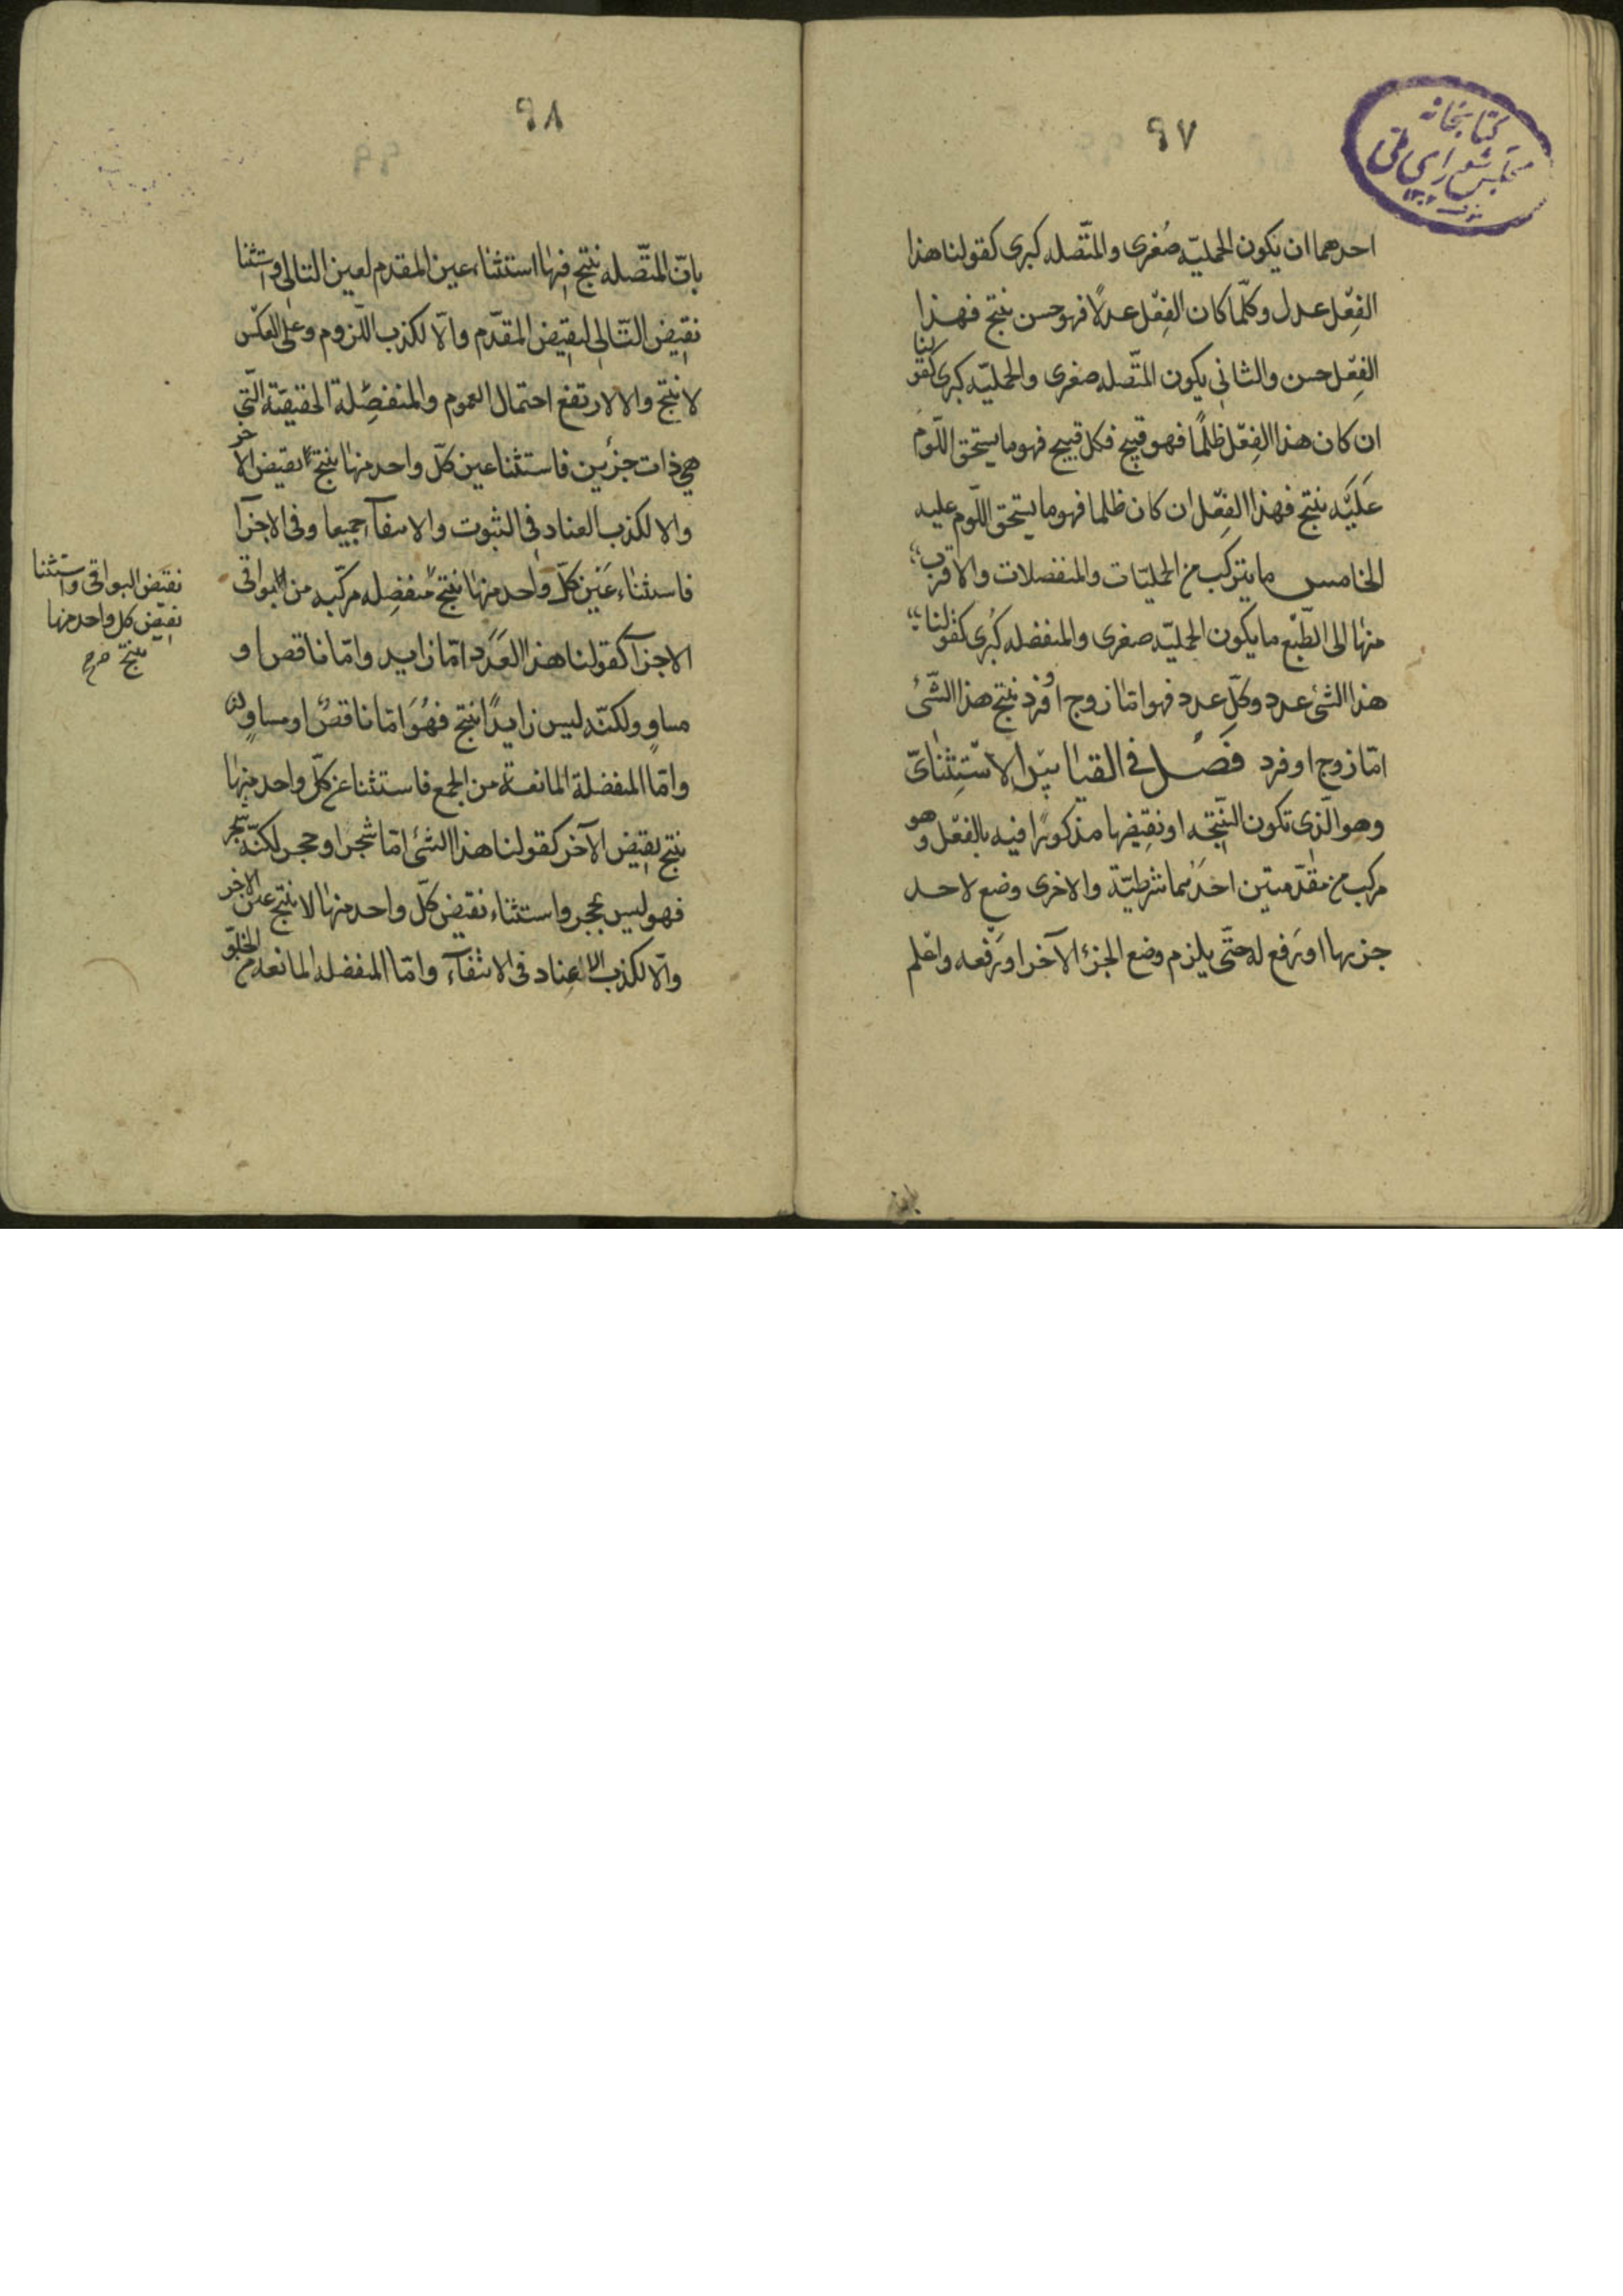 ٩٧
كتابخانه
مجلس شورای ملی
احدهما ان يكون الحمليّه صُغرى والمتّصله كبرى كقولنا هذا
الفِعْل عدل وكلّما كان الفِعْل عدلًا فهو حسن ينتج فهذا
الفِعْل حسن والثانى يكون المتّصله صغرى والحمليّه كبرى كقولنا
ان كان هذا الفِعْل ظلمًا فهو قبيح فكل قبيح فهو ما يستحق اللّوم
عَليَه ينتج فهذا الفِعْل ان كان ظلما فهو ما يستحق اللّوم عليه
الخامس ما يتركب من الحمليّات والمنفصلات والاقرب
منها الى الطّبْع ما يكون الحمليّه صغرى والمنفصله كُبرى كقولنا
هذا الشئ عدد وكلّ عدد فهو امّا زوج او فرد ينتج هذا الشّئ
امّا زوج او فرد فَصْل فى القياس الاسْتِثْنائىّ
وهو الّذى تكون النّتيجه او نقيضها مذكورًا فيه بالفعْل وهو
مركب من مقدّمتين احدٰىهما شرطيّة والاخرى وضع لاحد
جزيها او رَفع له حتّى يلزم وضع الجزء الآخر او رَفعه واعْلم
٩٨
بانّ المتّصله ينتج فيها استثناء عين المقدم لعين التالى واستثنا
نقيض التّالى لنقيض المقدّم والّا لكذب اللّزوم وعلى العكس
لا ينتج والا لارتفع احتمال العموم والمنفصِلة الحقيقيّة الّتى
هى ذات جزئين فاستثنا عين كلّ واحد منها ينتج نقيض الآخر
والا لكذب العناد فى الثبوت والانتفآء جميعا وفى الاجزا
فاستثناء عَين كلّ واحد منها ينتج منفصِله مركّبه من البواقى
الاجزآ كقولنا هذا العَدَد امّا زايد وامّا ناقص او
مساوٍ ولكنّه ليس زايدًا ينتج فهُوَ امّا ناقصٌ او مساوٍ
وامّا المنفصلة المانعة من الجمع فاستثنا عين كلّ واحد منها
ينتج نقيض الآخر كقولنا هذا الشئ امّا شجر او حجر لكنّه شجر
فهو ليس بحجر واستثناء نقيض كلّ واحد منها لا ينتج عين الاخر
والّا لكذب العناد فى الانتفآء وامّا المنفصله المانعه من الخلوّ
نقيض البواقى واستثنا
نقيض كل واحد منها
ينتج